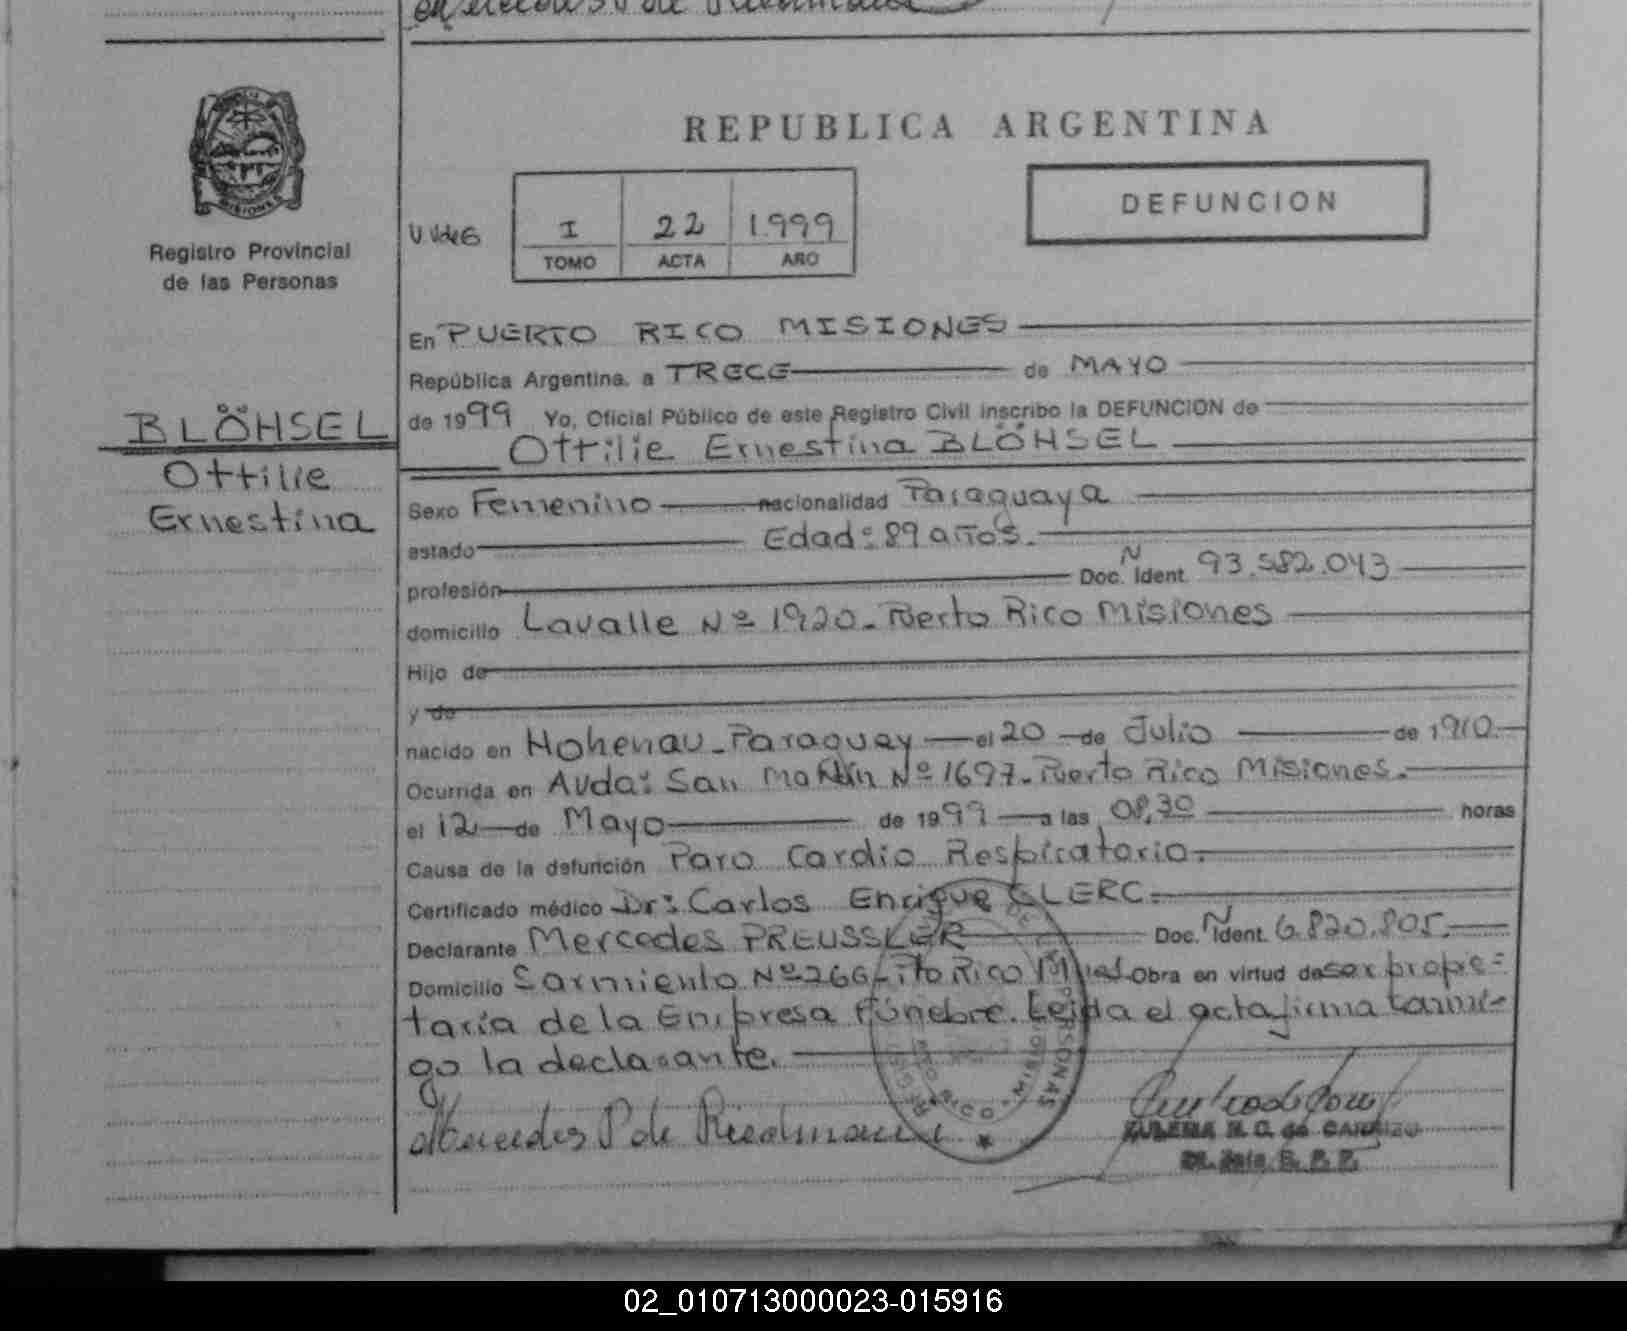 REPUBLICA ARGENTINA
DEFUNCION
I 22 1.999
TOMO ACTA AÑO
MISIONES
Registro Provincial
de las Personas
BLÖHSEL
Ottilie
Ernestina
En PUERTO RICO MISIONES
República Argentina, a TRECE de MAYO
de 1999 Yo, Oficial Público de este Registro Civil inscribo la DEFUNCION de
Ottilie Ernestina BLÖHSEL
Sexo Femenino nacionalidad Paraguaya
estado Edad: 89 años.
profesión Doc. N Ident. 93.582.043
domicilio Lavalle Nº 1920. Puerto Rico Misiones
Hijo de
y de
nacido en Hohenau - Paraguay el 20 de Julio de 1910
Ocurrida en Avda: San Martin Nº 1697. Puerto Rico Misiones.
el 12 de Mayo de 1999 a las 08,30 horas
Causa de la defunción Paro Cardio Respiratorio.
Certificado médico Dr: Carlos Enrique CLERC.
Declarante Mercedes PREUSSLER Doc. N Ident. 6.820.805.
Domicilio Sarmiento Nº 266 - Pto Rico Obra en virtud de ser propie=
taria de la Empresa Fúnebre. Leida el acta firma conmi-
go la declarante.
Mercedes P de
02_010713000023-015916